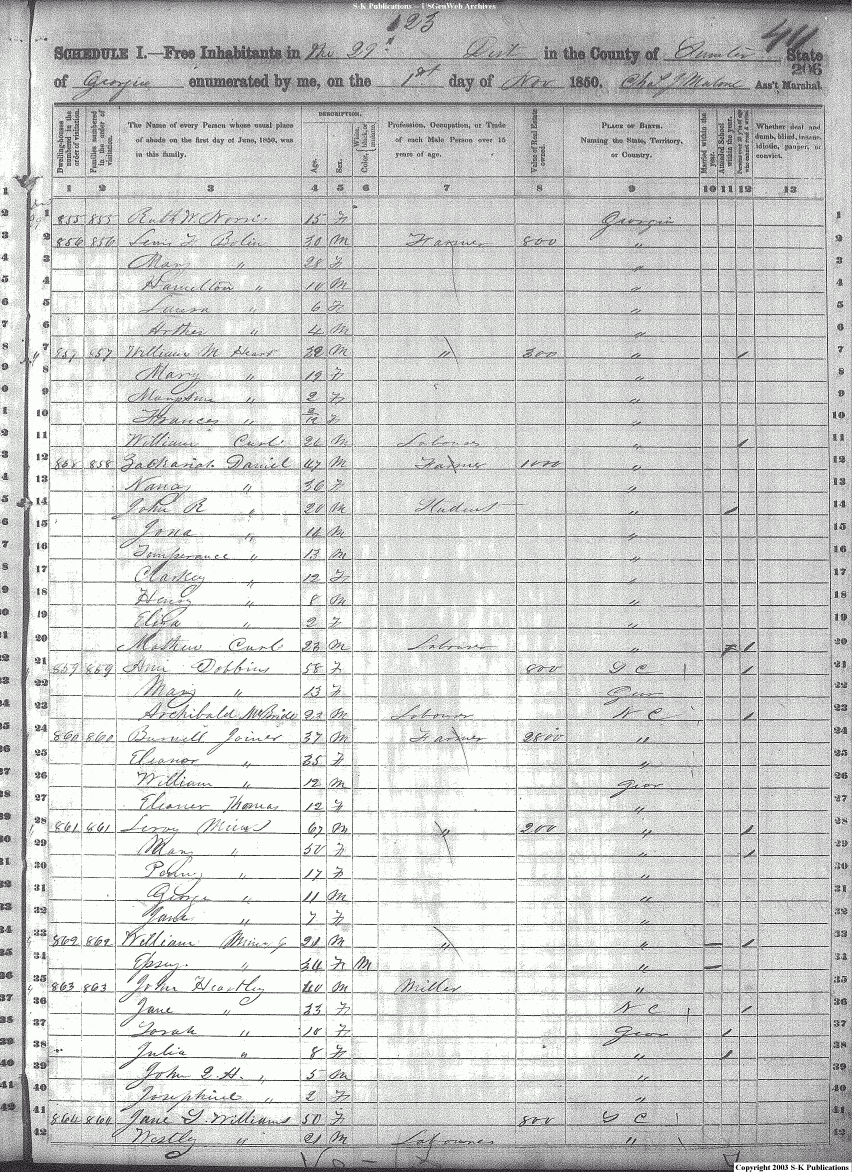 S-K Publications -- USGenWeb Archives
123
411
SCHEDULE I.—Free Inhabitants in the 29th Dist in the County of Sumter State
206
of Georgia enumerated by me, on the 1st day of Nov 1850. Chas J Malone Ass't Marshal.
DESCRIPTION.
Dwelling-houses numbered in the order of visitation. Families numbered in the order of visitation. The Name of every Person whose usual place of abode on the first day of June, 1850, was in this family. Age. Sex. Color, White, black, or mulatto. Profession, Occupation, or Trade of each Male Person over 15 years of age. Value of Real Estate owned. PLACE OF BIRTH. Naming the State, Territory, or Country. Married within the year. Attended School within the year. Persons over 20 y'rs of age who cannot read & write. Whether deaf and dumb, blind, insane, idiotic, pauper, or convict.
1 2 3 4 5 6 7 8 9 10 11 12 13
1 855 855 Ruth W. 15 F Georgia 1
2 856 856 Bolin 30 M Farmer 800 " 2
3 Mary " 28 F " 3
4 Hamelton " 10 M " 4
5 Laura " 6 F " 5
6 " 4 M " 6
7 857 857 William M Heart 32 M " 300 " / 7
8 Mary " 19 F " 8
9 " 2 F " 9
10 Frances " F " 10
11 William Curl 26 M Labourer " / 11
12 858 858 Zachariah Daniel 47 M Farmer 1000 " 12
13 Nancy " 36 F " 13
14 John R " 20 M Student " / 14
15 Jona " M " 15
16 Temperance " 13 M " 16
17 Clarkey " 12 F " 17
18 Henry " 8 M " 18
19 Eliza " 2 F " 19
20 Mathew Curl 23 M Labourer " / 20
21 859 859 Ann Dobbins 58 F 800 S C / 21
22 Mary " 13 F Geor 22
23 Archibald McBride 22 M Labourer N C / 23
24 860 860 Burnell Joiner 37 M Farmer 2800 " 24
25 Eleanor " 35 F " 25
26 William " 12 M Geor 26
27 Eleanor Thomas 12 F " 27
28 861 861 Leroy 67 M " 200 " / 28
29 Mary " 50 F " / 29
30 " 17 F " 30
31 George " 11 M " 31
32 Jane " 7 F " 32
33 862 862 William 21 M " " / 33
34 Epsey " 34 F M " 34
35 863 863 John Heartley 40 M Miller " 35
36 Jane " 33 F N C / 36
37 " 10 F Geor / 37
38 Julia " 8 F " / 38
39 John Q. H. " 5 M " 39
40 Josephine " 2 F " 40
41 864 864 Jane S. Williams 50 F 800 S C 41
42 Westly " 21 M Labourer " 42
Copyright 2003 S-K Publications